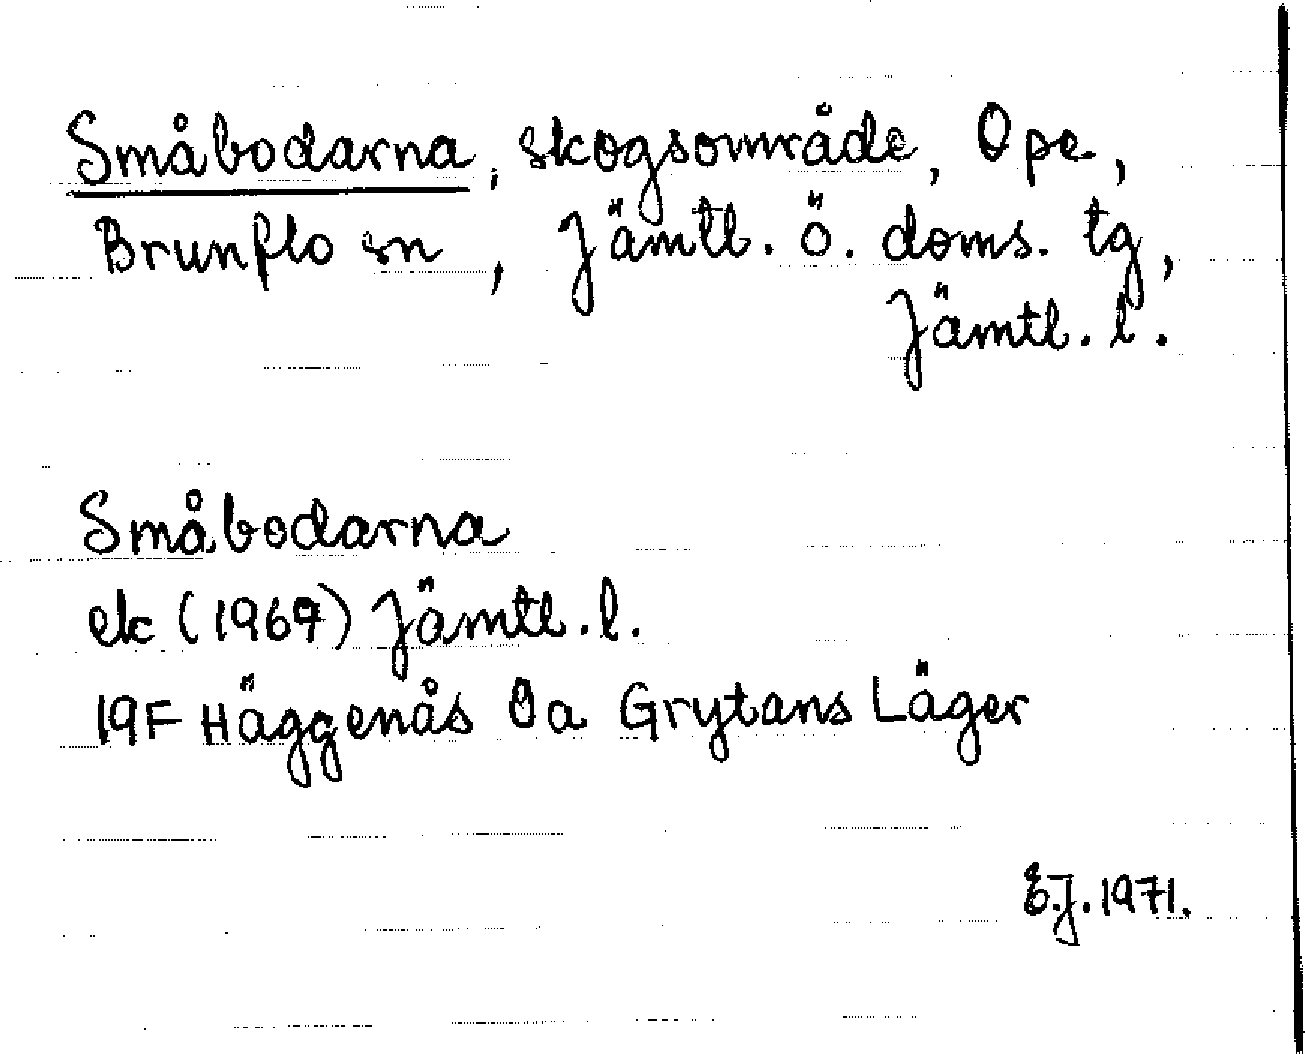 Småbodarna, skogsområde, Ope,
Brunflo sn, Jämtl. ö. doms. tg,
Jämtl. l.
Småbodarna
ek (1969) Jämtl. l.
19F Häggenås 0a Grytans Läger
E.J. 1971.